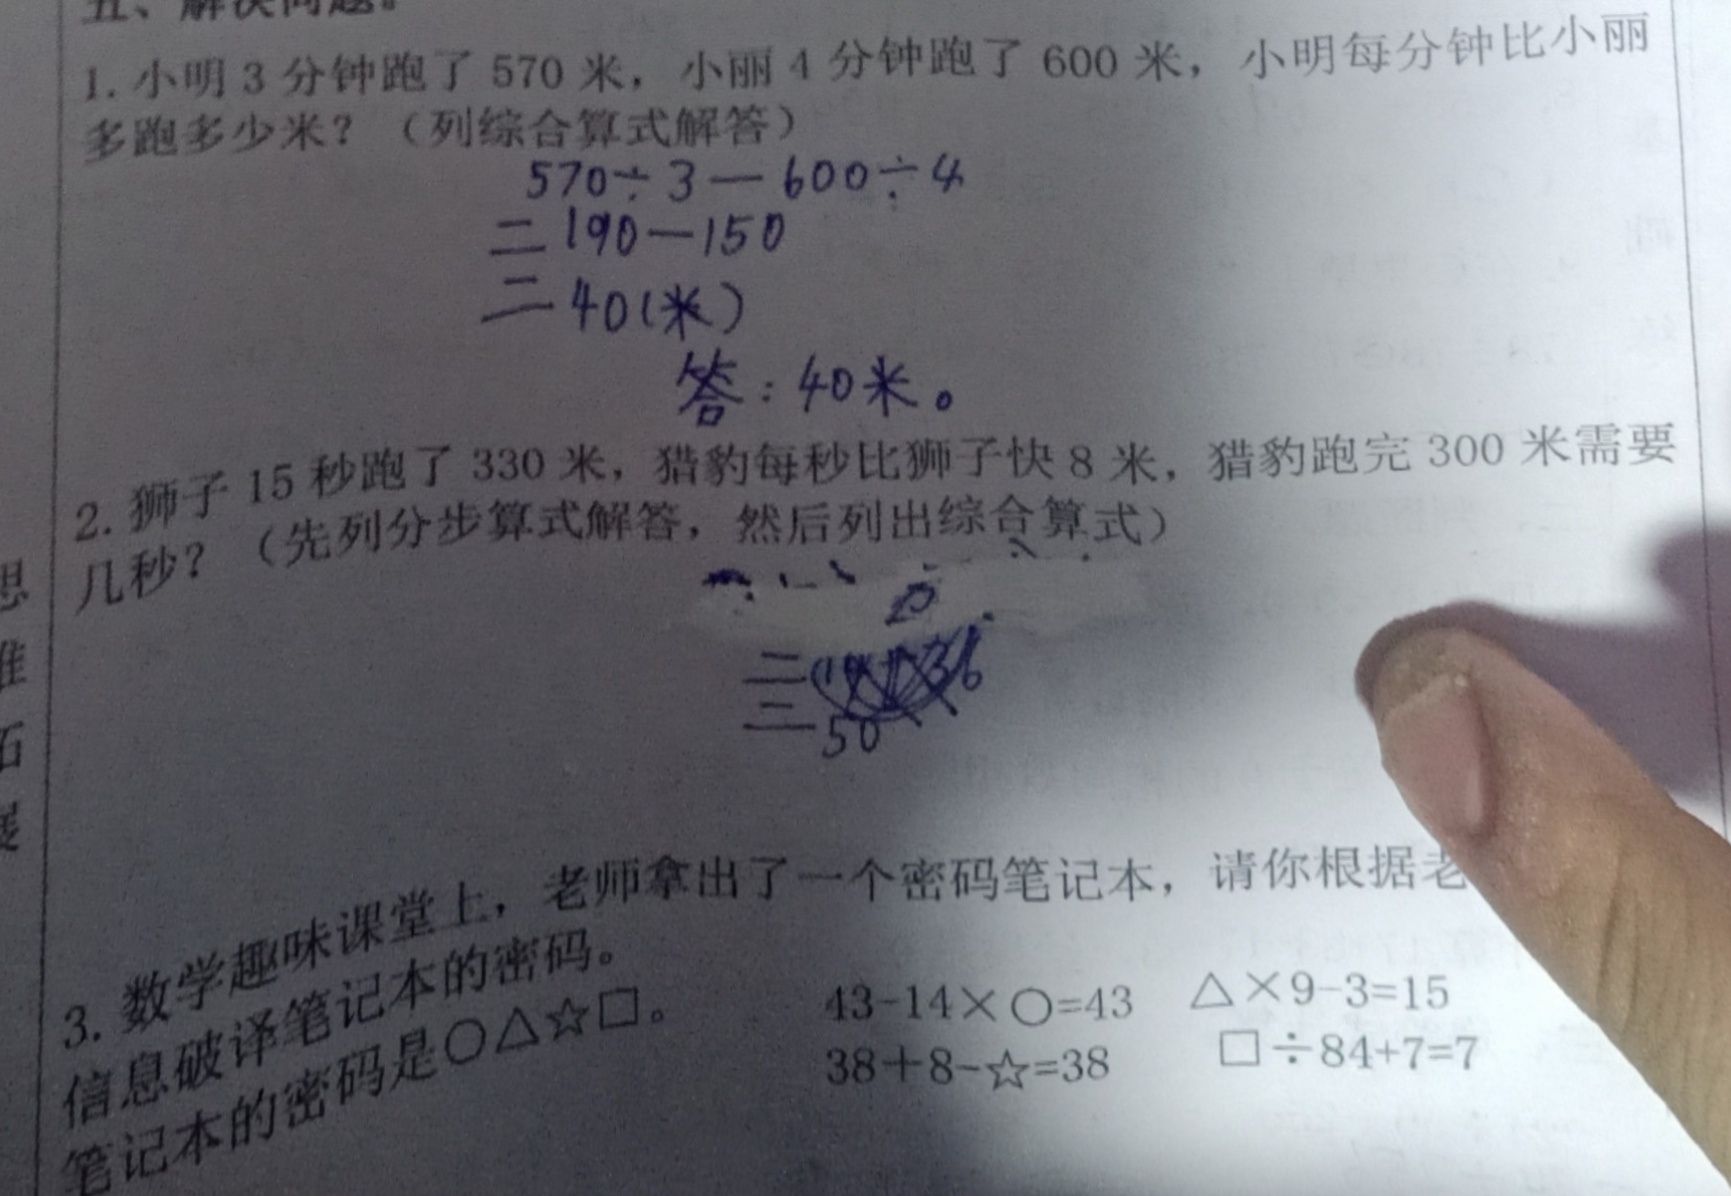 五、解决问题。
1. 小明 3 分钟跑了 570 米，小丽 4 分钟跑了 600 米，小明每分钟比小丽
多跑多少米？（列综合算式解答）
570÷3－600÷4
=190－150
=40(米)
答：40米。
2. 狮子 15 秒跑了 330 米，猎豹每秒比狮子快 8 米，猎豹跑完 300 米需要
几秒？（先列分步算式解答，然后列出综合算式）
=
=50
思
维
拓
展
3. 数学趣味课堂上，老师拿出了一个密码笔记本，请你根据老
信息破译笔记本的密码。
笔记本的密码是○△☆□。
43-14×○=43 △×9-3=15
38+8-☆=38 □÷84+7=7